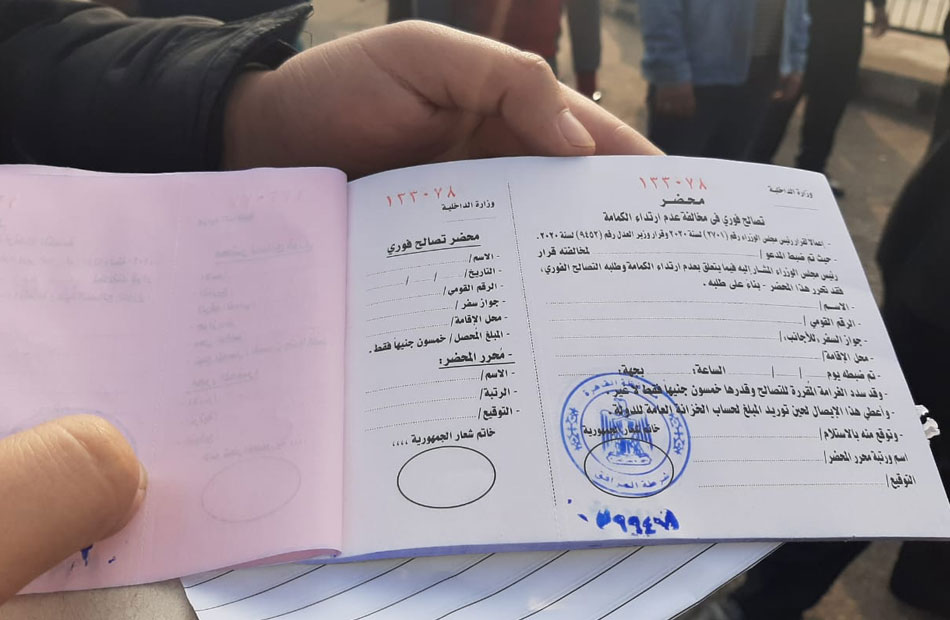 ١٣٣٠٧٨
وزارة الداخلية
محضر
تصالح فوري فى مخالفة عدم ارتداء الكمامة
- إعمالا لقرار رئيس مجلس الوزراء رقم (٢٧٠١) لسنة ٢٠٢٠ وقرار وزير العدل رقم (٩٤٥٢) لسنة ٢٠٢٠.
حيث تم ضبط المدعو / لمخالفته قرار
رئيس مجلس الوزراء المشار اليه فيما يتعلق بعدم ارتداء الكمامة وطلبه التصالح الفوري،
فقد تحرر هذا المحضر - بناء على طلبه .
- الاسم /
- الرقم القومي /
- جواز السفر للأجانب /
- محل الاقامة/
- تم ضبطه يوم / / الساعة، بجهة،
- وقد سدد الغرامة المقررة للتصالح وقدرها خمسون جنيهاً فقط لا غير .
- وأعطي هذا الإيصال لحين توريد المبلغ لحساب الخزانة العامة للدولة .
- وتوقع منه بالاستلام /
خاتم شعار الجمهورية
اسم ورتبة محرر المحضر/
التوقيع /
القاهرة
شرطة المرافق
١٣٣٠٧٨
وزارة الداخلية
محضر تصالح فوري
- الاسم /
- التاريخ / / /
- الرقم القومي /
- جواز سفر /
- محل الإقامة/
- المبلغ المحصل / خمسون جنيهاً فقط .
- مُحرر المحضر:
- الاسم /
- الرتبة /
- التوقيع /
خاتم شعار الجمهورية ،،،،